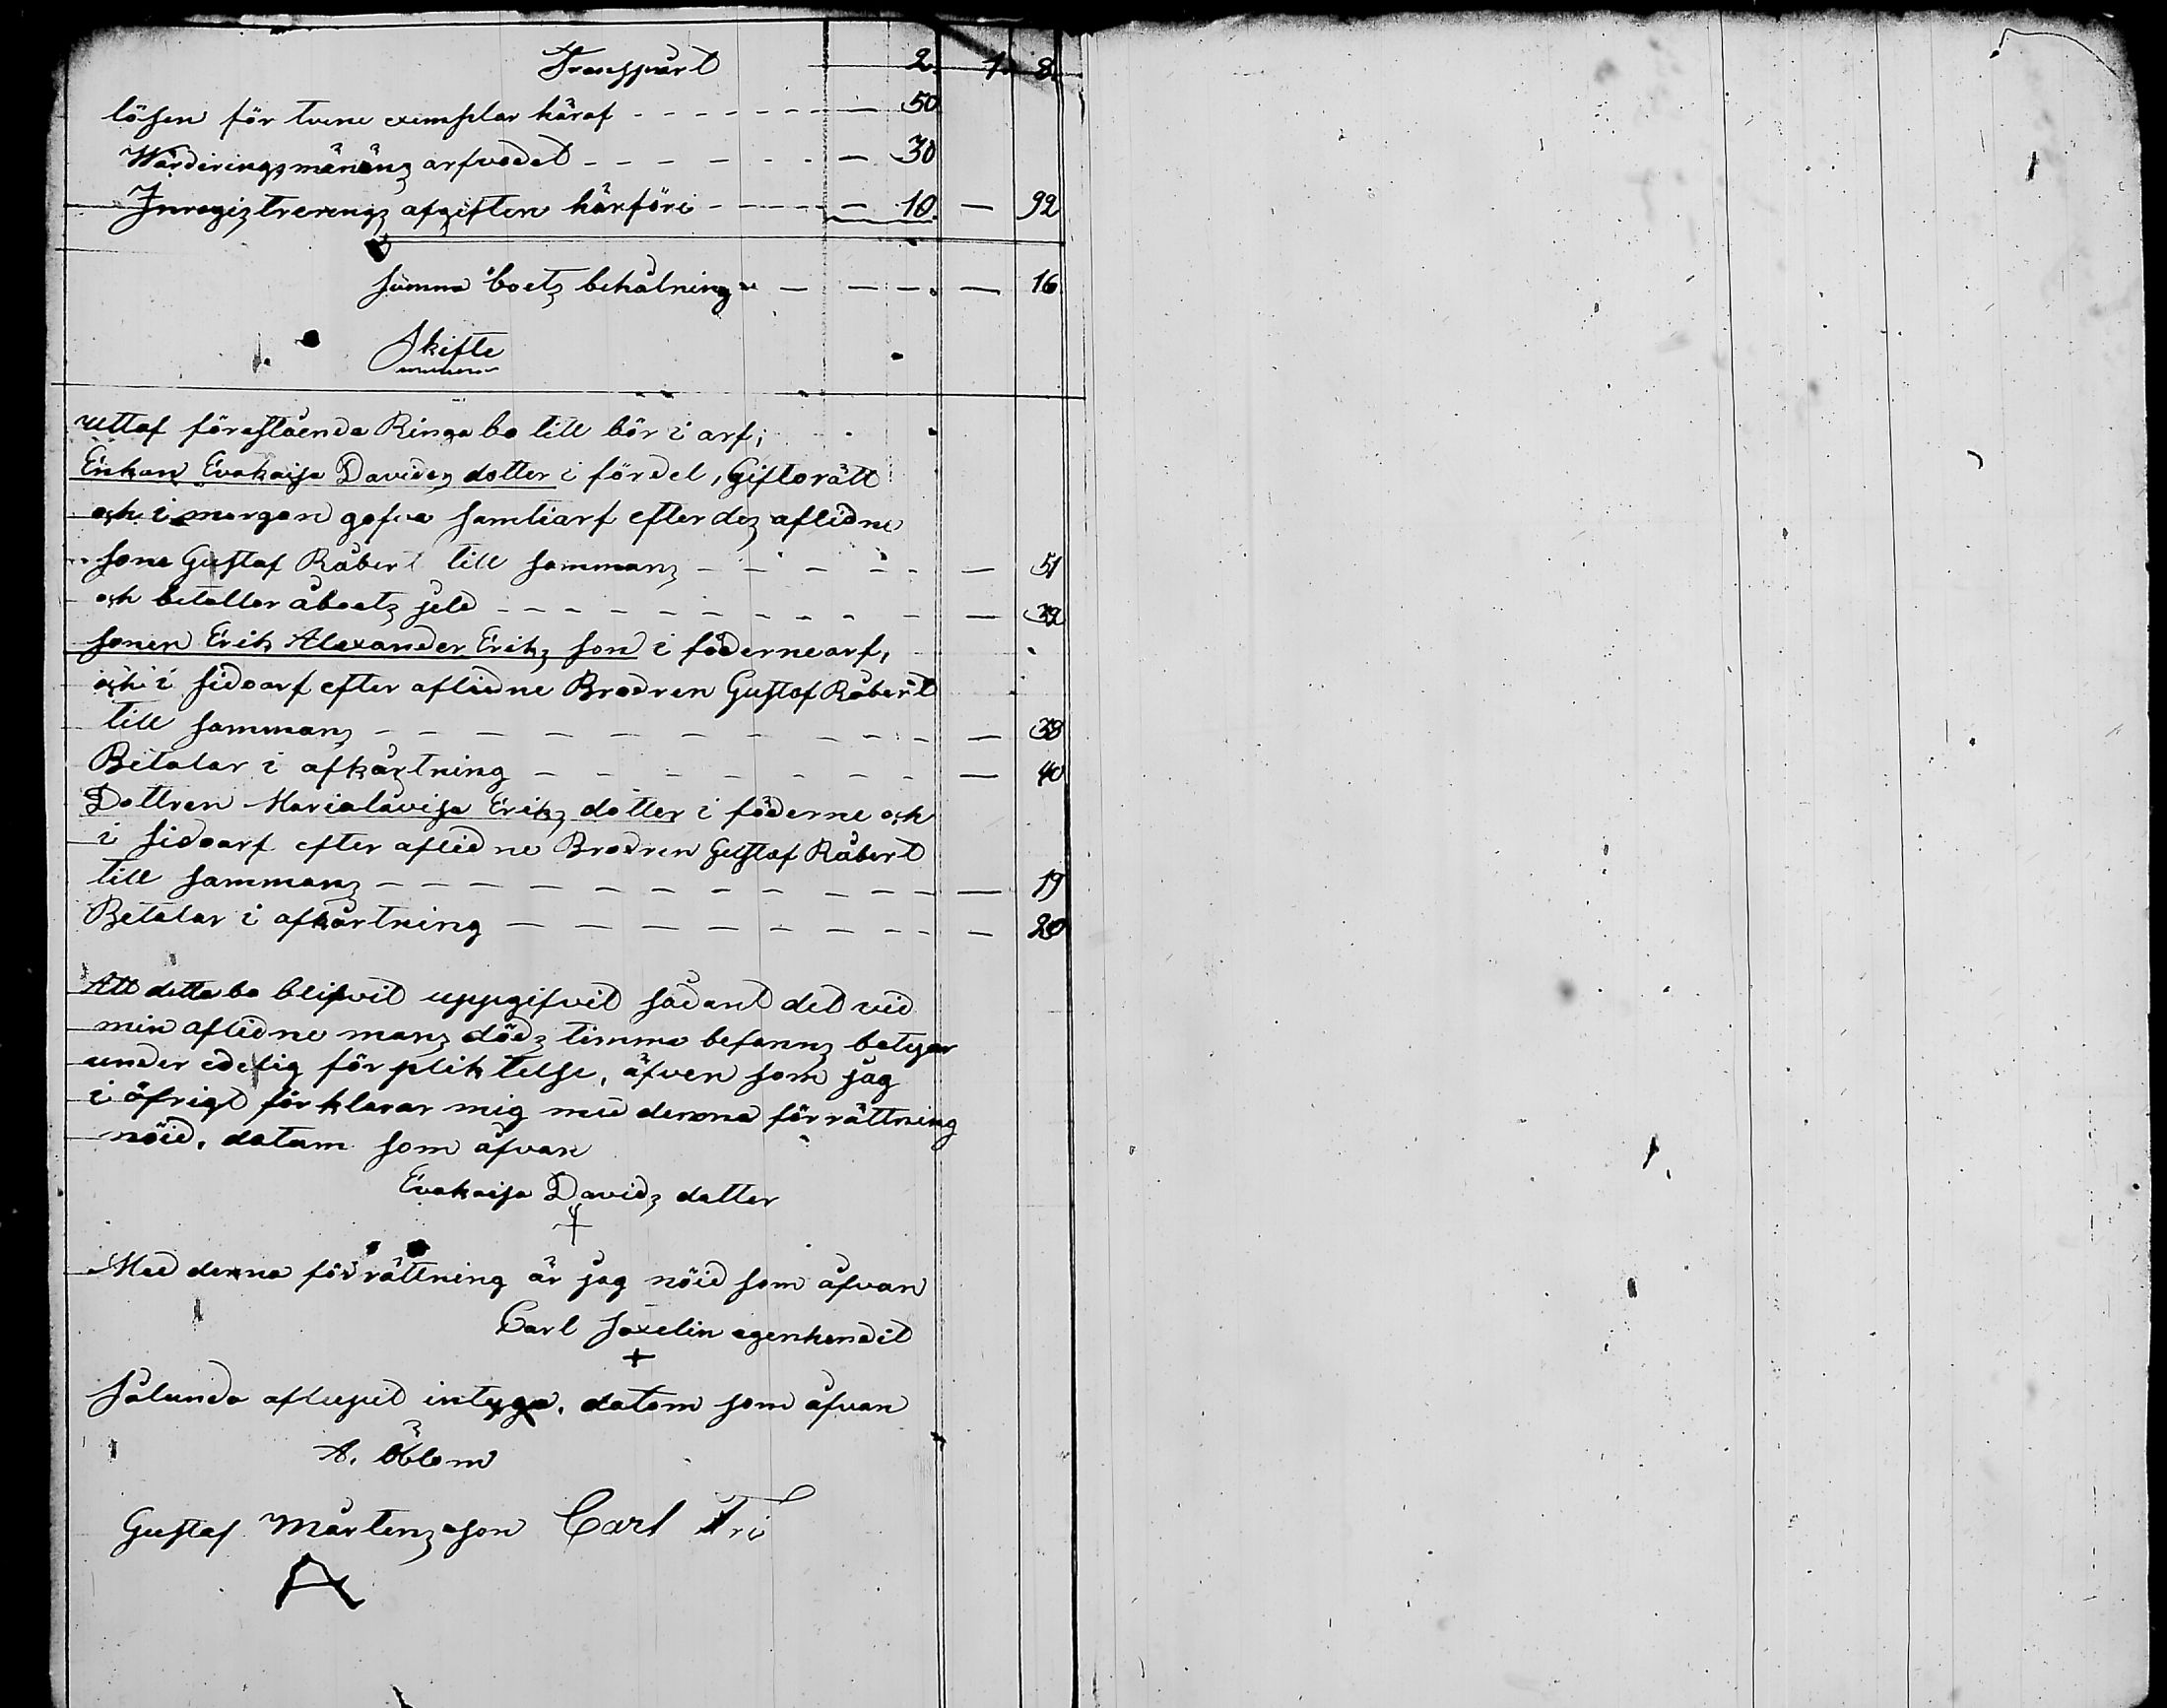 Transpårt 2. 1. 8.
lösen för tvene exemplar häraf - - - - - - - — 50
Wärderingsmänäns arfvodet - - - - - - — 30
Inregistrerings afgiften härföri - - - - - — 10. — 92
summa boets behålning — — — — 16
Skifte
uttaf föreståenda Ringa bo till bör i arf;
Enkan Evakaisa Davids dotter i fördel, Giftorätt
och i morgon gofva samtiarf efter des aflidne
sone Gustaf Råbert till sammans - - - - - — 51
och betallar åboets jeld - - - - - - - - — 32
sonen Erik Alexander Eriks son i födernearf,
och i sidoarf efter aflidne Brodren Gustaf Råbert
till sammans - - - - - - - - - — 38
Betalar i afkårtning - - - - - - - — 40
Dottren Marialåvisa Eriks dotter i föderne och
i sidoarf efter aflidne Brodren Gustaf Råbert
till sammans - - - - - - - - - - — 19
Betalar i afkårtning - - - - - - - - — 20
Att detta bo blifvit uppgifvit sådant det vid
min aflidne mans döds timma befanns betygar
under edelig förpliktelse, äfven som jag
i öfrigt förklarar mig med denna förrättning
nöid, datum som åfvan
Evakaisa Davids datter
Med denna förrättning är jag nöid som åfvan
Carl Saxelin egenhendit
+
Sålunda aflupit intyga, datom som åfvan
A. Öblom
Gustaf Mårtens son Carl Fri
A